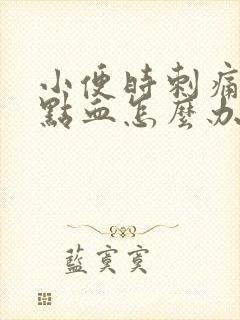 小便時刺痛
點血怎麼办
藍寞寞